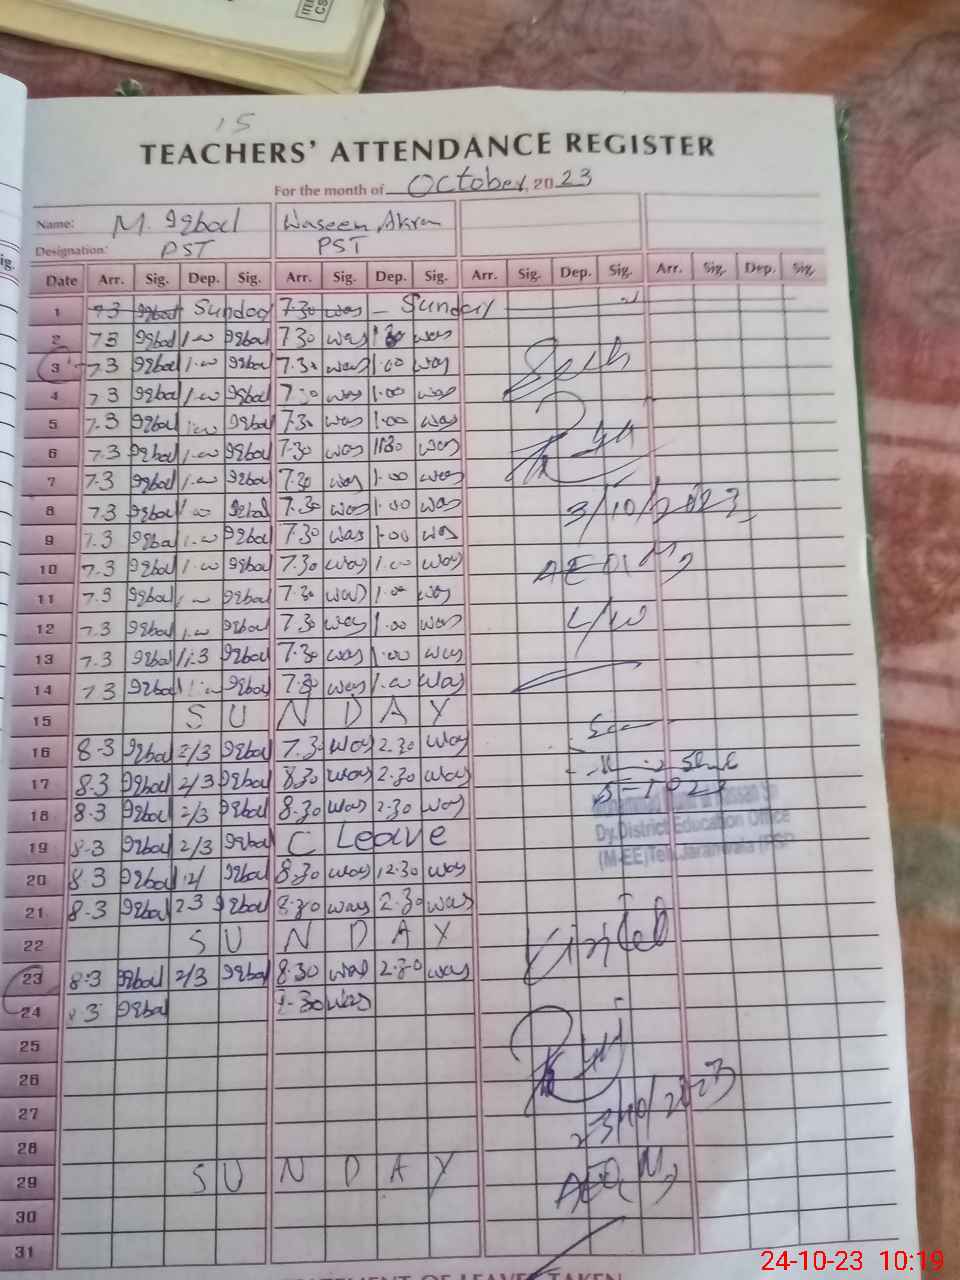 15
TEACHERS' ATTENDANCE REGISTER
For the month of October, 2023
Name: M. Iqbal Waseem Akram
Designation: PST PST
Date Arr. Sig. Dep. Sig. Arr. Sig. Dep. Sig. Arr. Sig. Dep. Sig. Arr. Sig. Dep. Sig.
1 73 Iqbal Sunday 7.30 was - Sunday
2 73 Iqbal 1.00 Iqbal 7.30 was was
3 73 Iqbal 1.00 Iqbal 7.30 was 1.00 was
4 73 Iqbal 1.00 Iqbal 7.30 was 1.00 was
5 7.3 Iqbal 1.00 Iqbal 7.30 was 1.00 was
6 7.3 Iqbal 1.00 Iqbal 7.30 was 11.30 was
7 7.3 Iqbal 1.00 Iqbal 7.30 was 1.00 was
8 7.3 Iqbal 1.00 Iqbal 7.30 was 1.00 was
3/10/2023
9 7.3 Iqbal 1.00 Iqbal 7.30 was 1.00 was
10 7.3 Iqbal 1.00 Iqbal 7.30 was 1.00 was
AEO
11 7.3 Iqbal 1.00 Iqbal 7.30 was 1.00 was
12 7.3 Iqbal 1.00 Iqbal 7.30 was 1.00 was
13 7.3 Iqbal 1:3 Iqbal 7.30 was 1.00 was
14 73 Iqbal 1.00 Iqbal 7.30 was 1.00 was
15 S U N D A Y
16 8.3 Iqbal 2/3 Iqbal 7.30 was 2.30 was
17 8.3 Iqbal 2/3 Iqbal 8.30 was 2.30 was
18 8.3 Iqbal 2/3 Iqbal 8.30 was 2.30 was
Dy. District Education Office
19 8.3 Iqbal 2/3 Iqbal C Leave
(M-EE) Teh. Jaranwala
20 8.3 Iqbal Iqbal 8.30 was 2.30 was
21 8.3 Iqbal 23 Iqbal 8.30 was 2.30 was
22 S U N D A Y
23 8.3 Iqbal 2/3 Iqbal 8.30 was 2.30 was
24 8.3 Iqbal 8.30 was
25
26
27
23/10/2023
28
29 S U N D A Y
AEO
30
31
STATEMENT OF LEAVE TAKEN
24-10-23 10:19